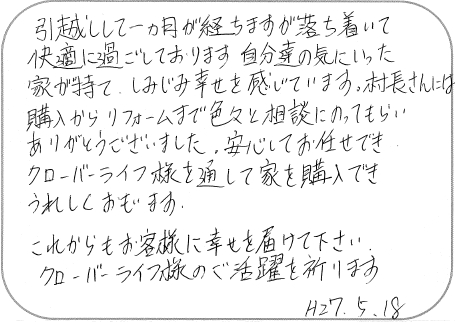 引越しして一ヵ月が経ちますが落ち着いて
快適に過ごしております。自分達の気にいった
家が持て、しみじみ幸せを感じています。村長さんには
購入からリフォームまで色々と相談にのってもらい
ありがとうございました。安心してお任せでき
クローバーライフ様を通して家を購入でき
うれしくおもいます。
これからもお客様に幸せを届けて下さい。
クローバーライフ様のご活躍を祈ります
H27.5.18